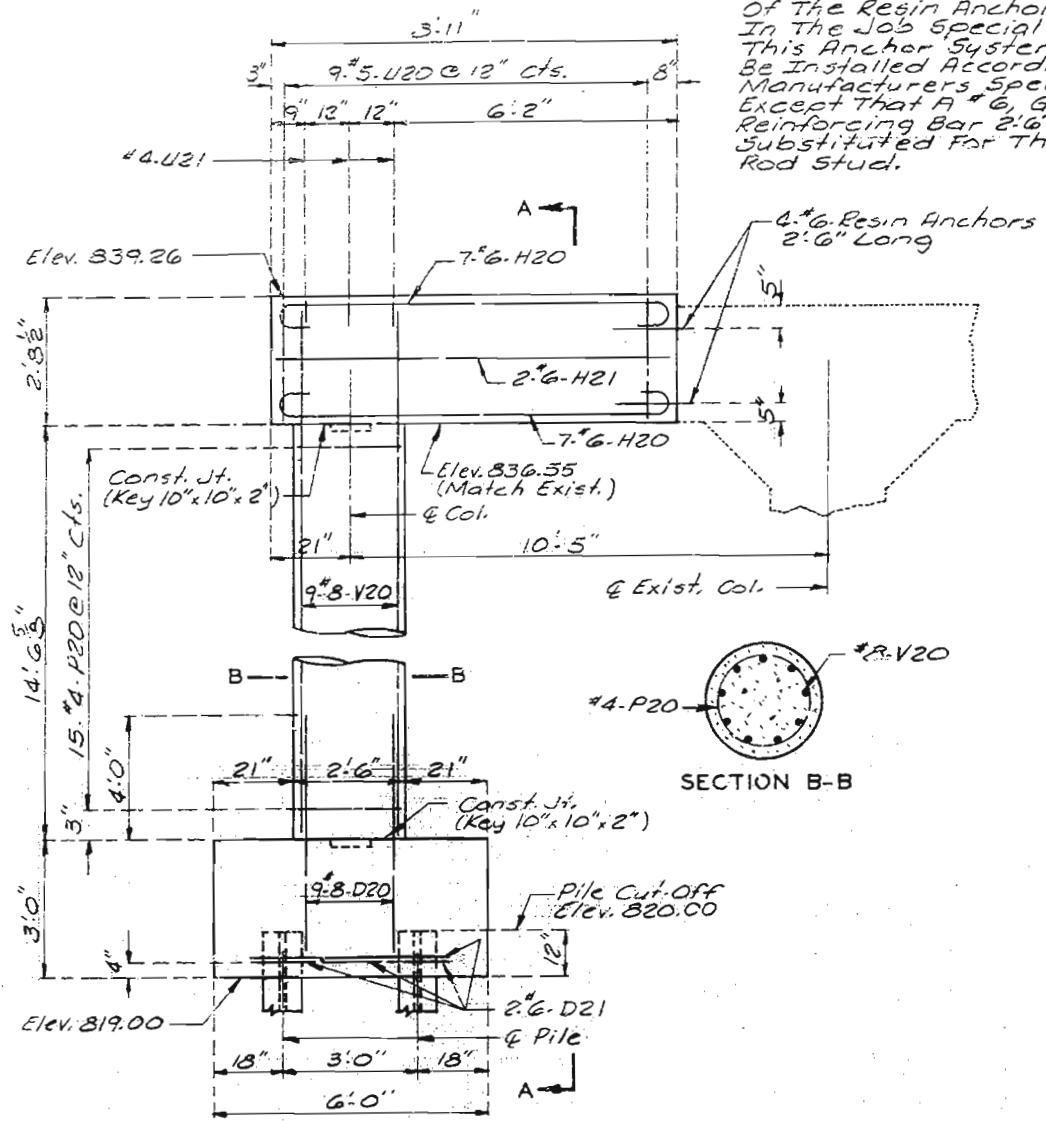 Of The Resin Anchor
In The Job Special
This Anchor System
Be Installed Accord
Manufacturers Spec
Except That A #6, G
Reinforcing Bar 2'-6"
Substituted For Th
Rod Stud.
3'-11"
3" 9-#5-U20 @ 12" Cts. 8"
9" 12" 12" 6'-2"
#4-U21
A
4-#6-Resin Anchors
2'-6" Long
Elev. 839.26
7-#6-H20
5"
2'-8½"
2-#6-H21
5"
7-#6-H20
Const. Jt.
(Key 10"x10"x2")
Elev. 836.55
(Match Exist.)
℄ Col.
21" 10'-5"
℄ Exist. Col.
9-#8-V20
14'-6⅝"
15-#4-P20 @ 12" Cts.
B B
#8-V20
#4-P20
SECTION B-B
4'-0"
21" 2'-6" 21"
3"
Const. Jt.
(Key 10"x10"x2")
3'-0"
9-#8-D20
Pile Cut-Off
Elev. 820.00
12"
4"
2-#6-D21
Elev. 819.00
℄ Pile
18" 3'-0" 18"
A
6'-0"